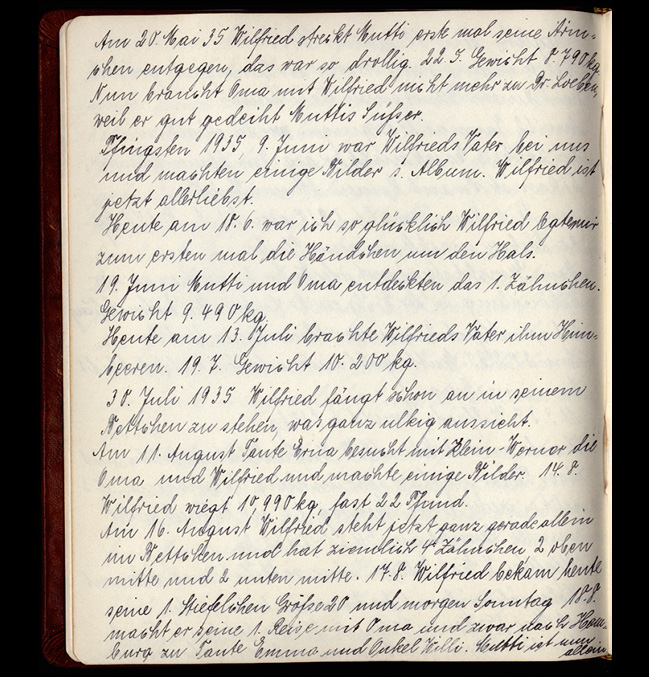 Am 20. Mai 35 Wilfried streckt Mutti erste mal seine Ärm-
chen entgegen, das war so drollig. 22.5. Gewicht 8.790 kg
Nun braucht Oma mit Wilfried nicht mehr zu Dr. Loeben,
weil er gut gedeiht Muttis Süßer.
Pfingsten 1935, 9. Juni war Wilfrieds Vater bei uns
und machten einige Bilder s. Album. Wilfried ist
jetzt allerliebst.
Heute am 18.6. war ich so glücklich Wilfried legte mir
zum ersten mal die Händchen um den Hals.
19. Juni Mutti und Oma entdeckten das 1. Zähnchen.
Gewicht 9.490 kg.
Heute am 13. Juli brachte Wilfrieds Vater ihm Him-
beeren. 19.7. Gewicht 10.200 kg.
30. Juli 1935 Wilfried fängt schon an in seinem
Bettchen zu stehen, was ganz ulkig aussieht.
Am 11. August Tante Erna besucht mit Klein-Werner die
Oma und Wilfried und machte einige Bilder. 14.8.
Wilfried wiegt 10,990 kg, fast 22 Pfund.
Am 16. August Wilfried steht jetzt ganz gerade allein
im Bettchen und hat ziemlich 4 Zähnchen 2 oben
mitte und 2 unten mitte. 17.8. Wilfried bekam heute
seine 1. Stiefelchen Größe 20 und morgen Sonntag 18.8.
macht er seine 1. Reise mit Oma und zwar nach Ham-
burg zu Tante Emma und Onkel Willi. Mutti ist nun
allein